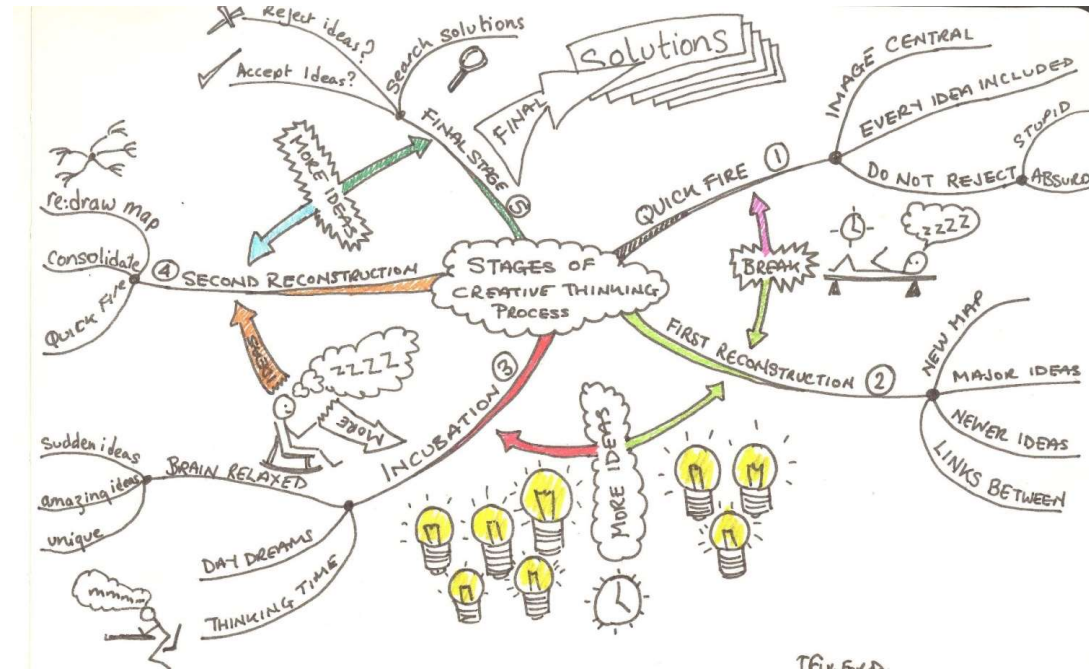 STAGES OF
CREATIVE THINKING
PROCESS
QUICK FIRE ①
IMAGE CENTRAL
EVERY IDEA INCLUDED
DO NOT REJECT
STUPID
ABSURD
BREAK
ZZZZ
FIRST RECONSTRUCTION ②
NEW MAP
MAJOR IDEAS
NEWER IDEAS
LINKS BETWEEN
MORE IDEAS
INCUBATION ③
BRAIN RELAXED
sudden ideas
amazing ideas
unique
DAY DREAMS
THINKING TIME
mmm...
ZZZZ
MORE
IDEAS
④ SECOND RECONSTRUCTION
re:draw map
Consolidate
QUICK FIRE
MORE IDEAS
FINAL STAGE ⑤
Reject ideas?
Accept Ideas?
Search solutions
FINAL
SOLUTIONS